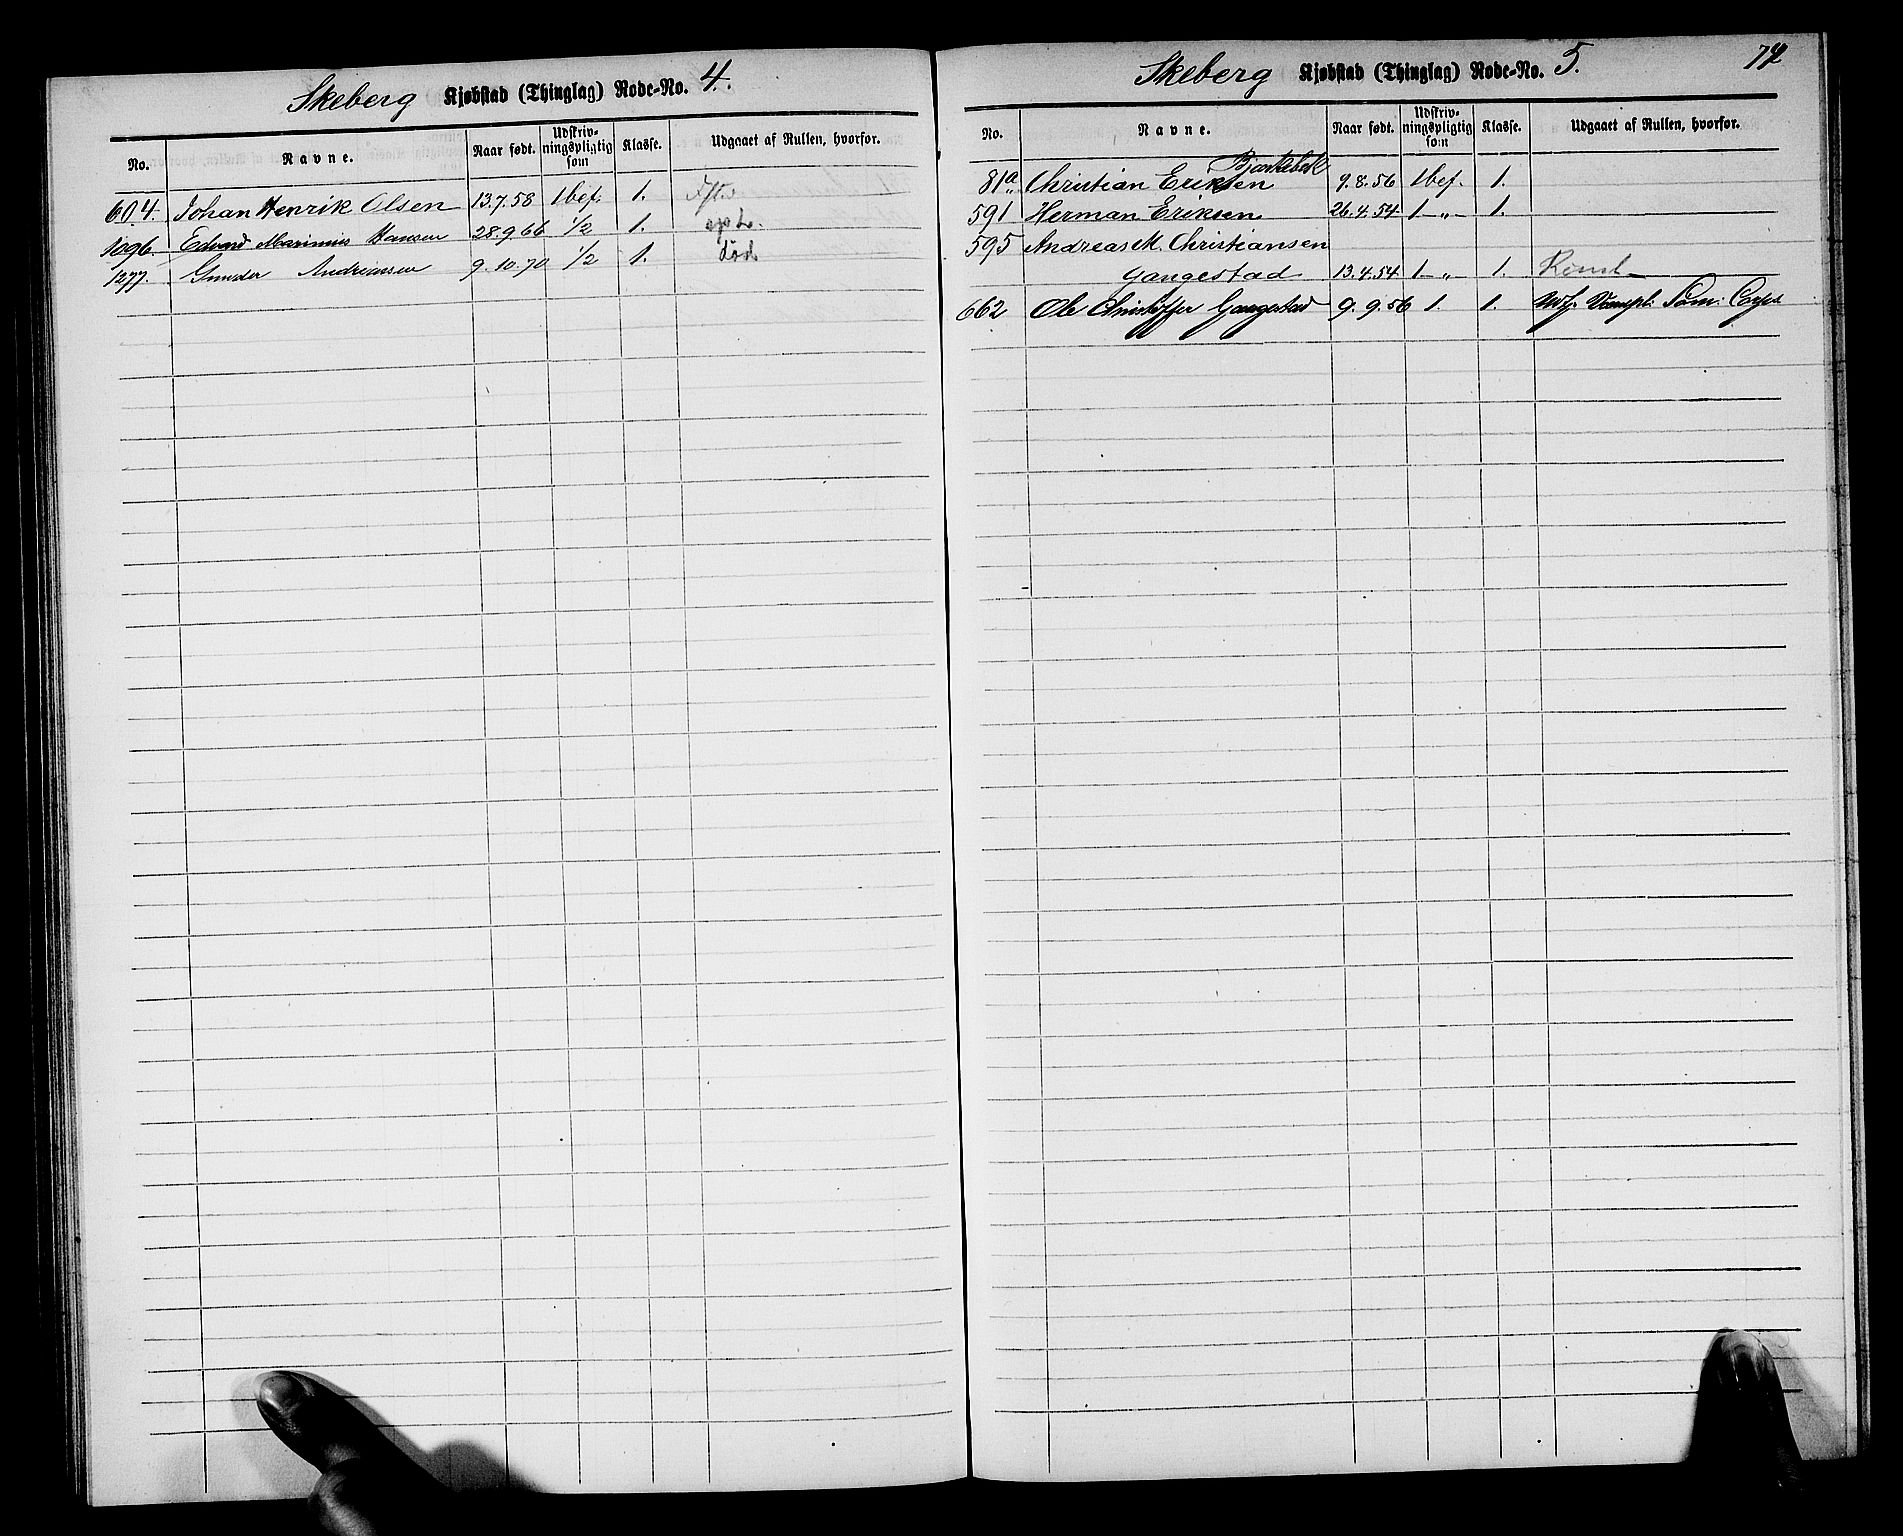 Skeberg Kjøbstad (Thinglag) Rode-No. 4.
No. Navne. Naar født. Udskriv-ningspligtig som Klasse. Udgaaet af Rullen, hvorfor.
604. Johan Henrik Olsen 13.7.58 1 bef. 1.
1096. Edvard Marinius Hansen 28.9.66 1/2 1.
1277. Gunder Andreassen 9.10.70 1/2 1. død
Skeberg Kjøbstad (Thinglag) Rode-No. 5.
No. Navne. Naar født. Udskriv-ningspligtig som Klasse. Udgaaet af Rullen, hvorfor.
Bjørkebæk
81a Christian Eriksen 9.8.56 1 bef. 1.
591 Herman Eriksen 26.4.54 1 -„- 1.
595 Andreas M. Christiansen
Gangestad 13.4.54 1 -„- 1.
662 Ole Christoffer Gangestad 9.9.56 1. 1. Corps